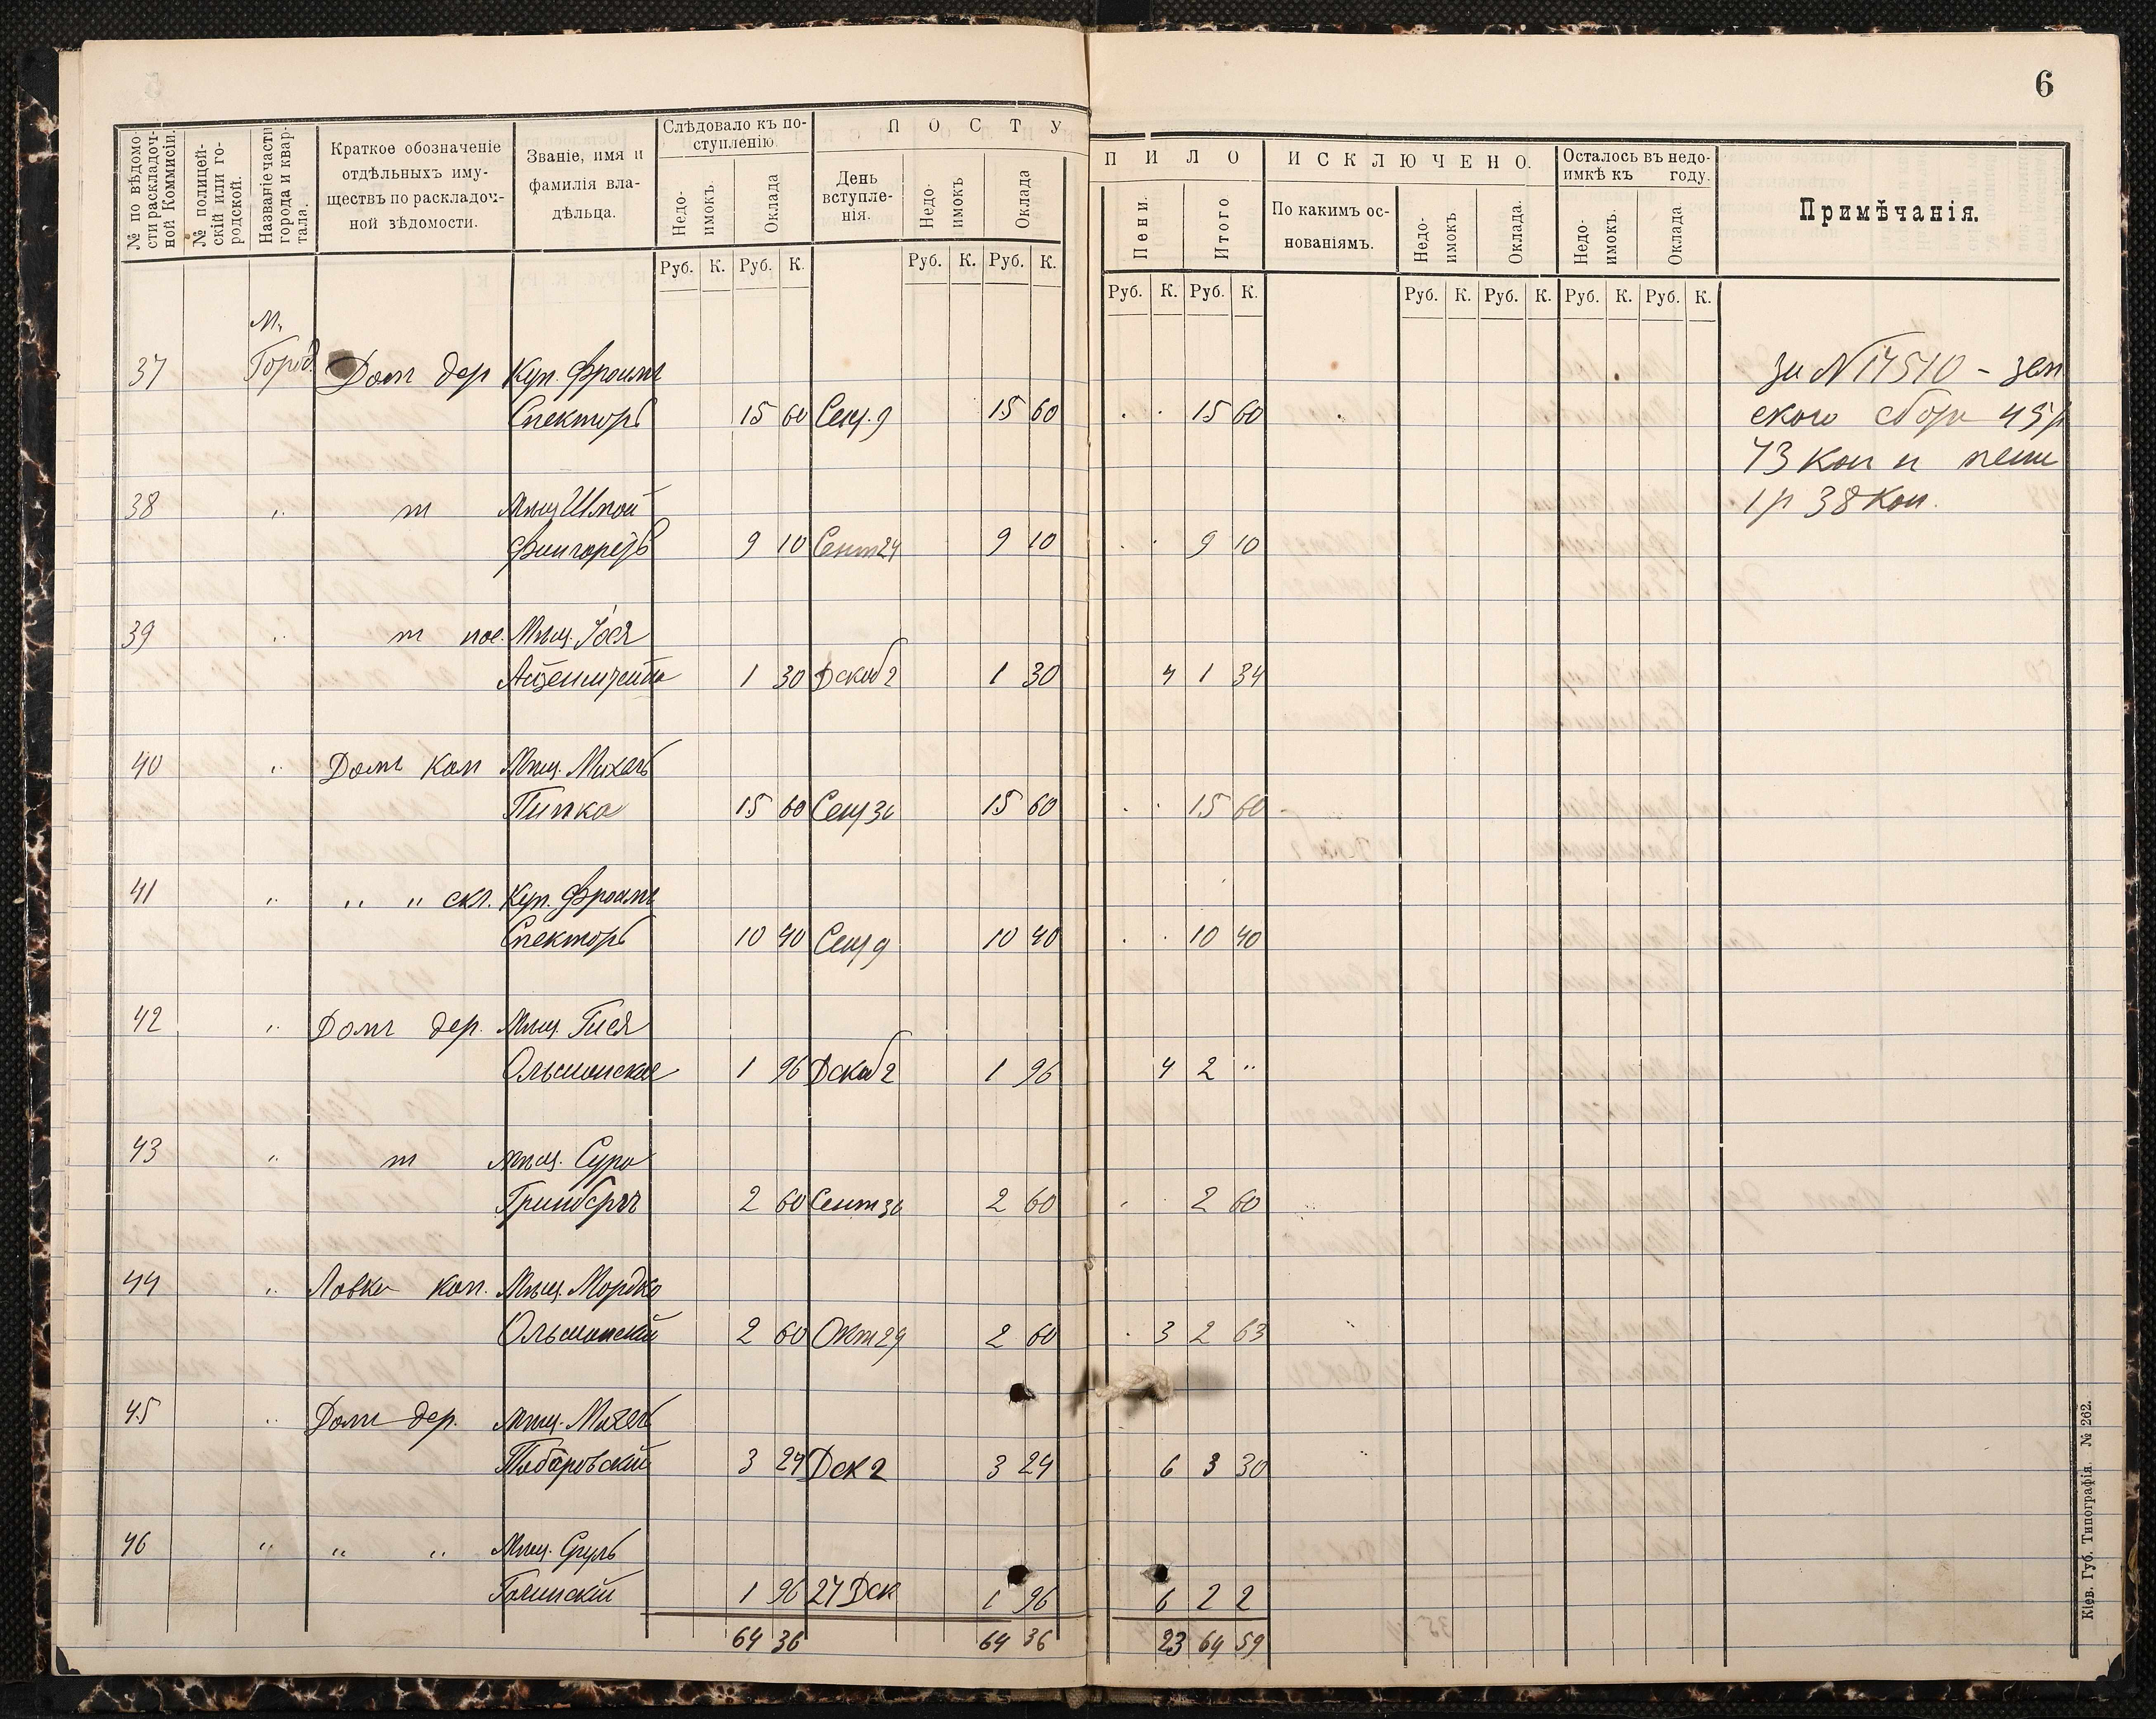 6
№ по вѣдомо-
сти раскладоч-
ной Коммисіи.
№ полицей-
скій или го-
родской.
Названіе части
города и квар-
тала.
Краткое обозначеніе
отдѣльныхъ иму-
ществъ по раскладоч-
ной вѣдомости.
Званіе, имя и
фамилія вла-
дѣльца.
Слѣдовало къ по-
ступленію.
Недо-
имокъ.
Оклада
П О С Т У
День
вступле-
нія.
Недо-
имокъ
Оклада
П И Л О
Пени.
Итого
И С К Л Ю Ч Е Н О.
По какимъ ос-
нованіямъ.
Недо-
имокъ
Оклада.
Осталось въ недо-
имкѣ къ году.
Недо-
имокъ.
Оклада.
Примѣчанія.
Руб. К. Руб. К. Руб. К. Руб. К. Руб. К. Руб. К. Руб. К. Руб. К. Руб. К. Руб. К.
М.
37 Город. Домъ дер Куп. Фроимъ
Спекторъ 15 60 Сен. 9 15 60 . . 15 60
за № 17510 - зем
скаго сбора 45 р
73 коп и пени
1 р 38 коп.
38 " " Мѣщ Шмой
9 10 Сент 24 9 10 . . 9 10
39 " " Мѣщ. Іося
1 30 Декаб 2 1 30 4 1 34
40 " Домъ кам Мѣщ. Михель
Пипко 15 60 Сен 30 15 60 . . 15 60
41 " " " скл. Куп. Фроимъ
Спекторъ 10 40 Сен 9 10 40 . . 10 40
42 " Домъ дер. Мѣщ. Гися
Ольшанская 1 96 Декаб 2 1 96 4 2 "
43 " " мѣщ. Сура
Гринбергъ 2 60 Сент 30 2 60 . . 2 60
44 " Лавка кам. Мѣщ. Мордко
Ольшанскій 2 60 Окт 29 2 60 . 3 2 63
45 " Домъ дер. мѣщ. Михель
3 24 Дек 2 3 24 6 3 30
46 " " " Мѣщ. Сруль
1 96 27 Дек 1 96 6 2 2
64 36 64 36 23 64 59
Кіев. Губ. Типографія. № 262.